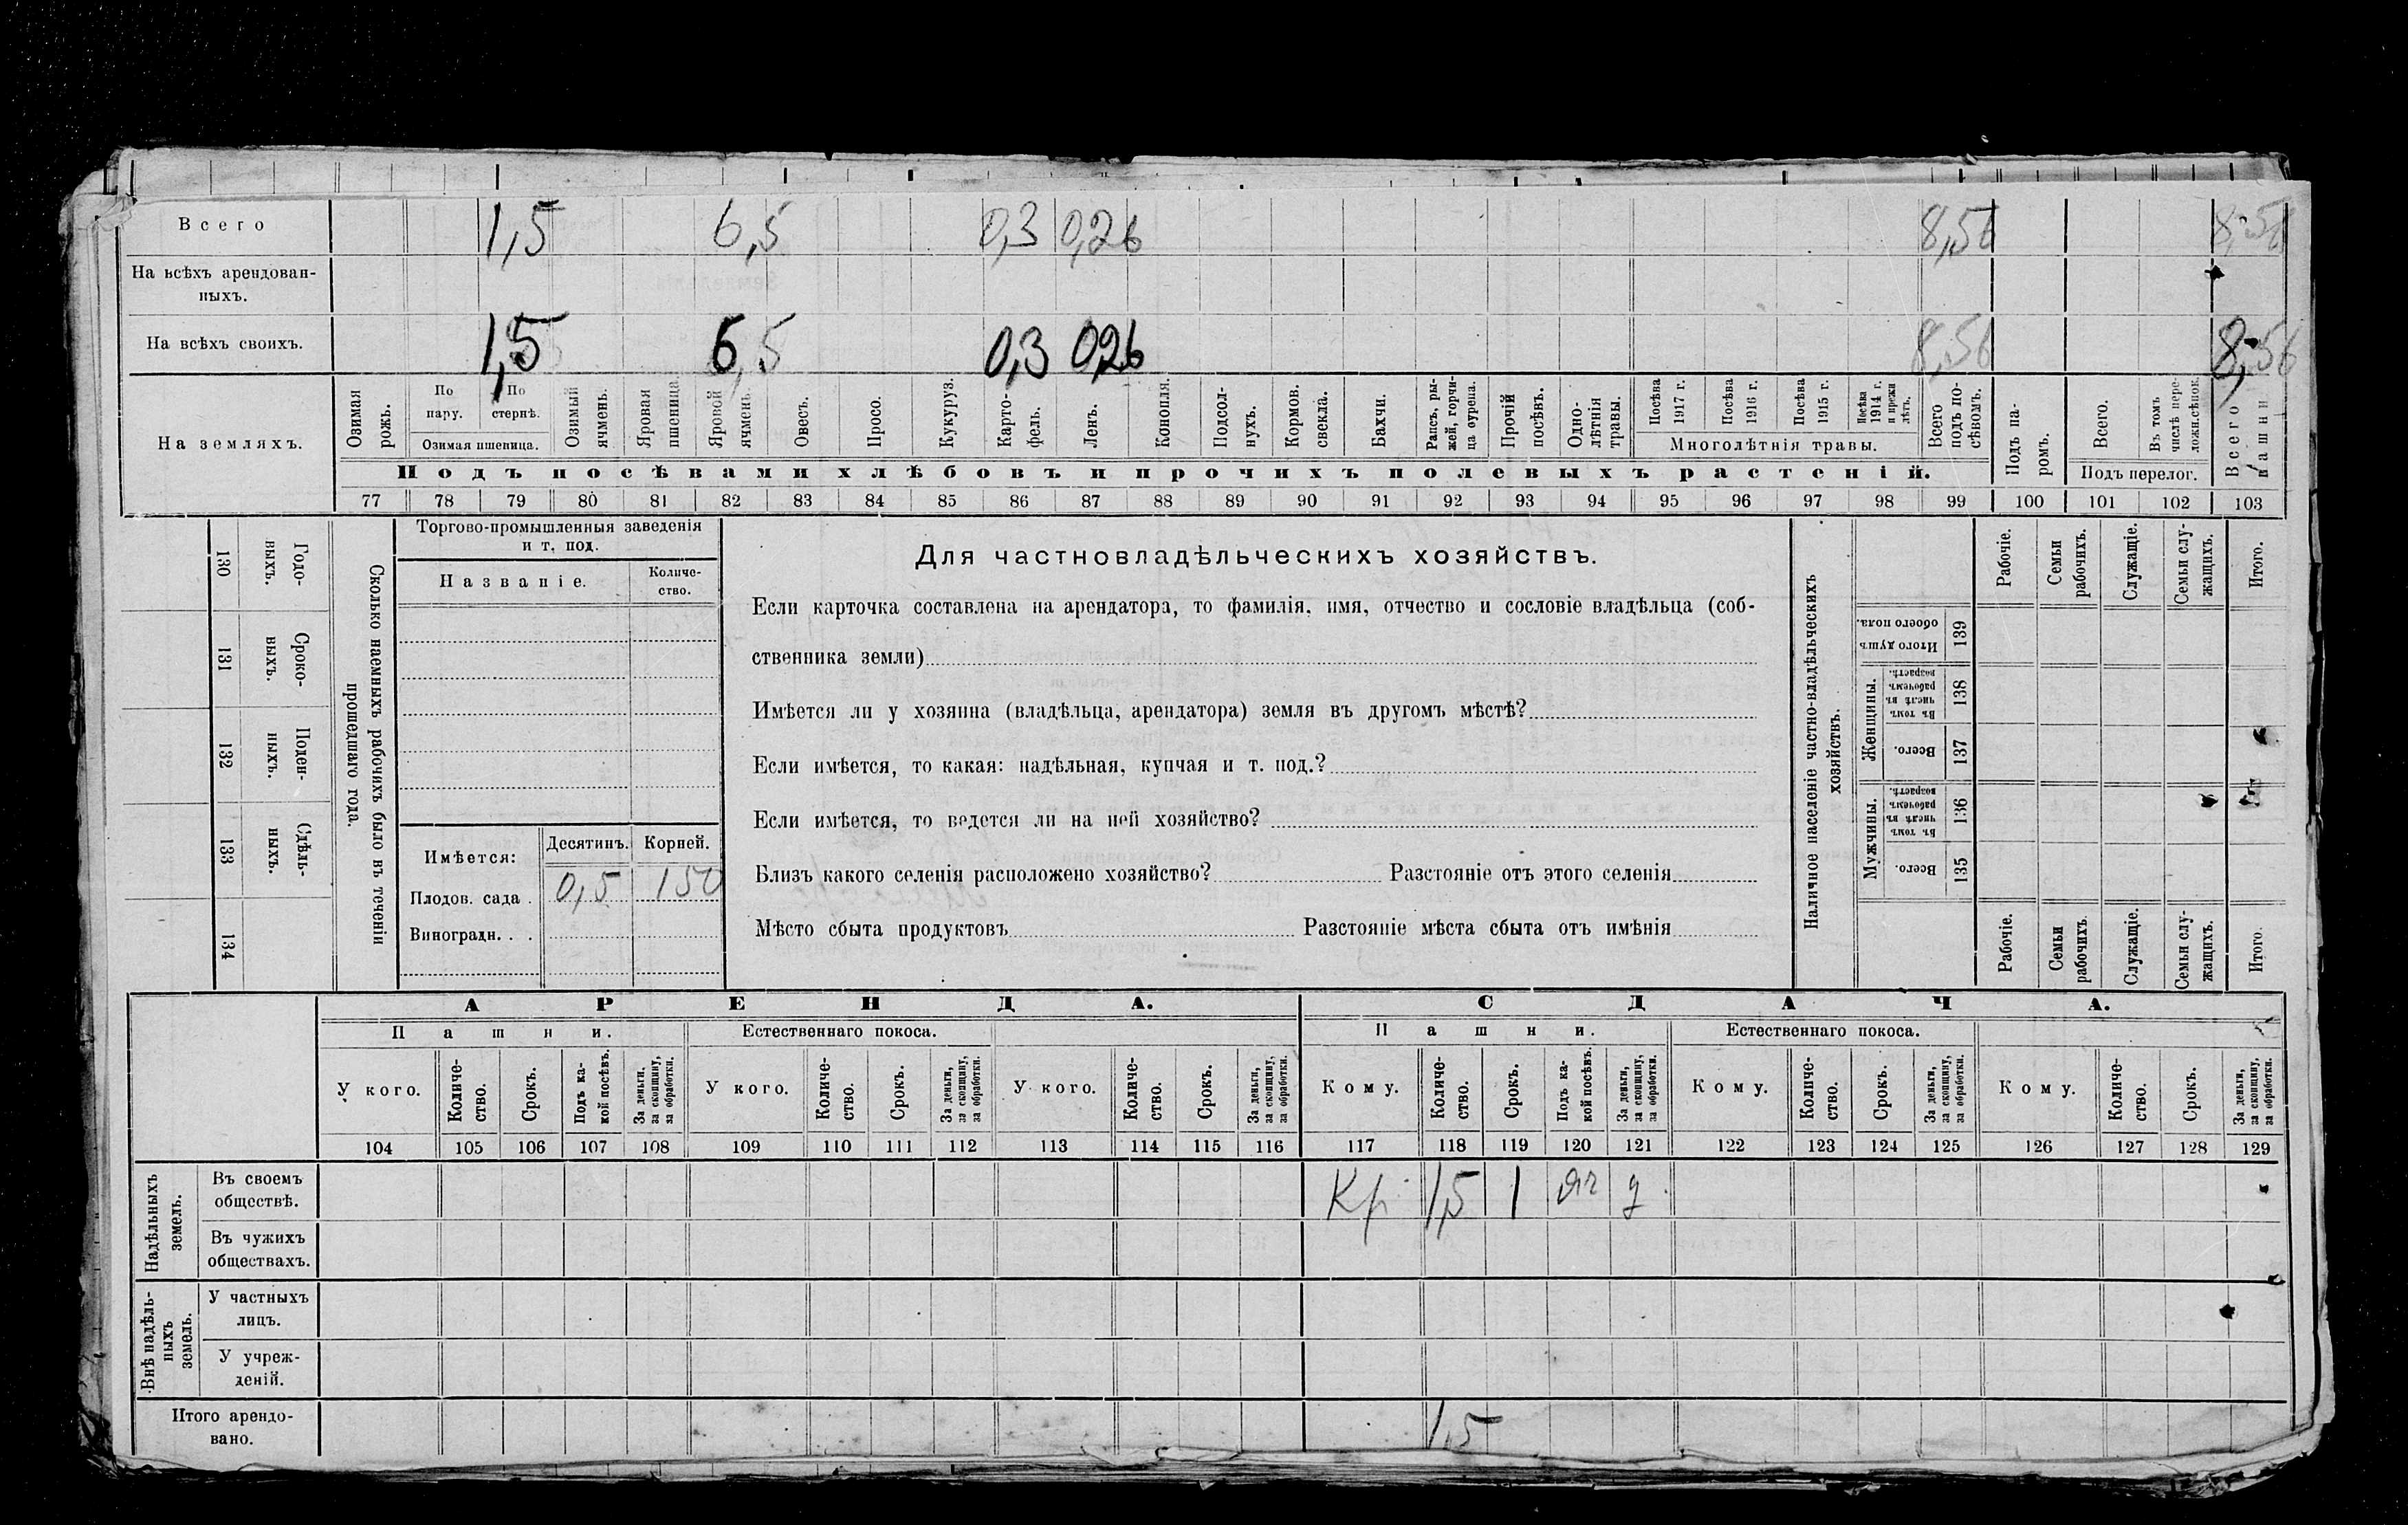 Всего 1,5 6,5 0,3 0,26 8,56 8,56
На всѣхъ арендован-
ныхъ.
На всѣхъ своихъ. 1,5 6,5 0,3 0,26 8,56 8,56
На земляхъ.
Озимая рожь.
По пару.
По стернѣ.
Озимая пшеница.
Озимый ячмень.
Яровая пшеница.
Яровой ячмень.
Овесъ.
Просо.
Кукуруз.
Карто-
фель.
Ленъ.
Конопля.
Подсол-
нухъ.
Кормов.
свекла.
Бахчи.
Рапсъ, ры-
жей, горчи-
ца сурепа.
Прочій
посѣвъ.
Одно-
лѣтнія
травы.
Посѣва 1917 г.
Посѣва 1916 г.
Посѣва 1915 г.
Посѣва 1914 г. и прежн лѣтъ.
Многолѣтнія травы.
Всего подъ по-
сѣвомъ.
Подъ па-
ромъ.
Всего.
Въ томъ числѣ пере-
ложн.сѣнок.
Подъ перелог.
Всего пашни
Подъ посѣвами хлѣбовъ и прочихъ полевыхъ растеній.
77 78 79 80 81 82 83 84 85 86 87 88 89 90 91 92 93 94 95 96 97 98 99 100 101 102 103
130 Годо-
выхъ.
131 Сроко-
ныхъ.
132 Поден-
ныхъ.
133 Сдѣль-
ныхъ.
134
Сколько наемныхъ рабочихъ было въ теченіи
прошедшаго года.
Торгово-промышленныя заведенія
и т. под.
Названіе.
Количе-
ство.
Имѣется: Десятинъ. Корней.
Плодов. сада . 0,5 150
Виноградн. . .
Для частновладѣльческихъ хозяйствъ.
Если карточка составлена на арендатора, то фамилія, имя, отчество и сословіе владѣльца (соб-
ственника земли)
Имѣется ли у хозяина (владѣльца, арендатора) земля въ другомъ мѣстѣ?
Если имѣется, то какая: надѣльная, купчая и т. под.?
Если имѣется, то ведется ли на ней хозяйство?
Близъ какого селенія расположено хозяйство? Разстояніе отъ этого селенія
Мѣсто сбыта продуктовъ Разстояніе мѣста сбыта отъ имѣнія
Наличное населеніе частно-владѣльческихъ
хозяйствъ.
Рабочіе.
Семьи рабочихъ.
Служащіе.
Семьи слу-
жащихъ.
Итого.
Итого душъ обоего пола. 139
Женщины.
Въ томъ числѣ въ рабочемъ возрастѣ. 138
Всего. 137
Мужчины.
Въ томъ числѣ въ рабочемъ возрастѣ. 136
Всего. 135
Рабочіе.
Семьи рабочихъ.
Служащіе.
Семьи слу-
жащихъ.
Итого.
АРЕНДА. СДАЧА.
Пашни. Естественнаго покоса. Пашни. Естественнаго покоса.
У кого.
Количе-
ство.
Срокъ.
Подъ ка-
кой посѣвъ.
За деньги,
за скопщину,
за обработки.
У кого.
Количе-
ство.
Срокъ.
За деньги,
за скопщину,
за обработки.
У кого.
Количе-
ство.
Срокъ.
За деньги,
за скопщину,
за обработки.
Кому.
Количе-
ство.
Срокъ.
Подъ ка-
кой посѣвъ.
За деньги,
за скопщину,
за обработки.
Кому.
Количе-
ство.
Срокъ.
За деньги,
за скопщину,
за обработки.
Кому.
Количе-
ство.
Срокъ.
За деньги,
за скопщину,
за обработки.
104 105 106 107 108 109 110 111 112 113 114 115 116 117 118 119 120 121 122 123 124 125 126 127 128 129
Надѣльныхъ
земель.
Въ своемъ
обществѣ. Кр 1,5 1 яч д
Въ чужихъ
обществахъ.
Внѣ надѣль-
ныхъ
земель.
У частныхъ
лицъ.
У учреж-
деній.
Итого арендо-
вано. 1,5